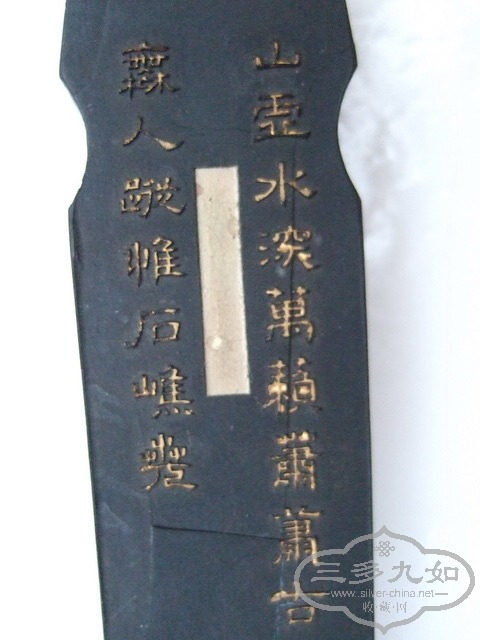 山虛水深萬籟蕭蕭古
無人蹤惟石嶕嶢
三多九如
www.silver-china.net
收藏·网